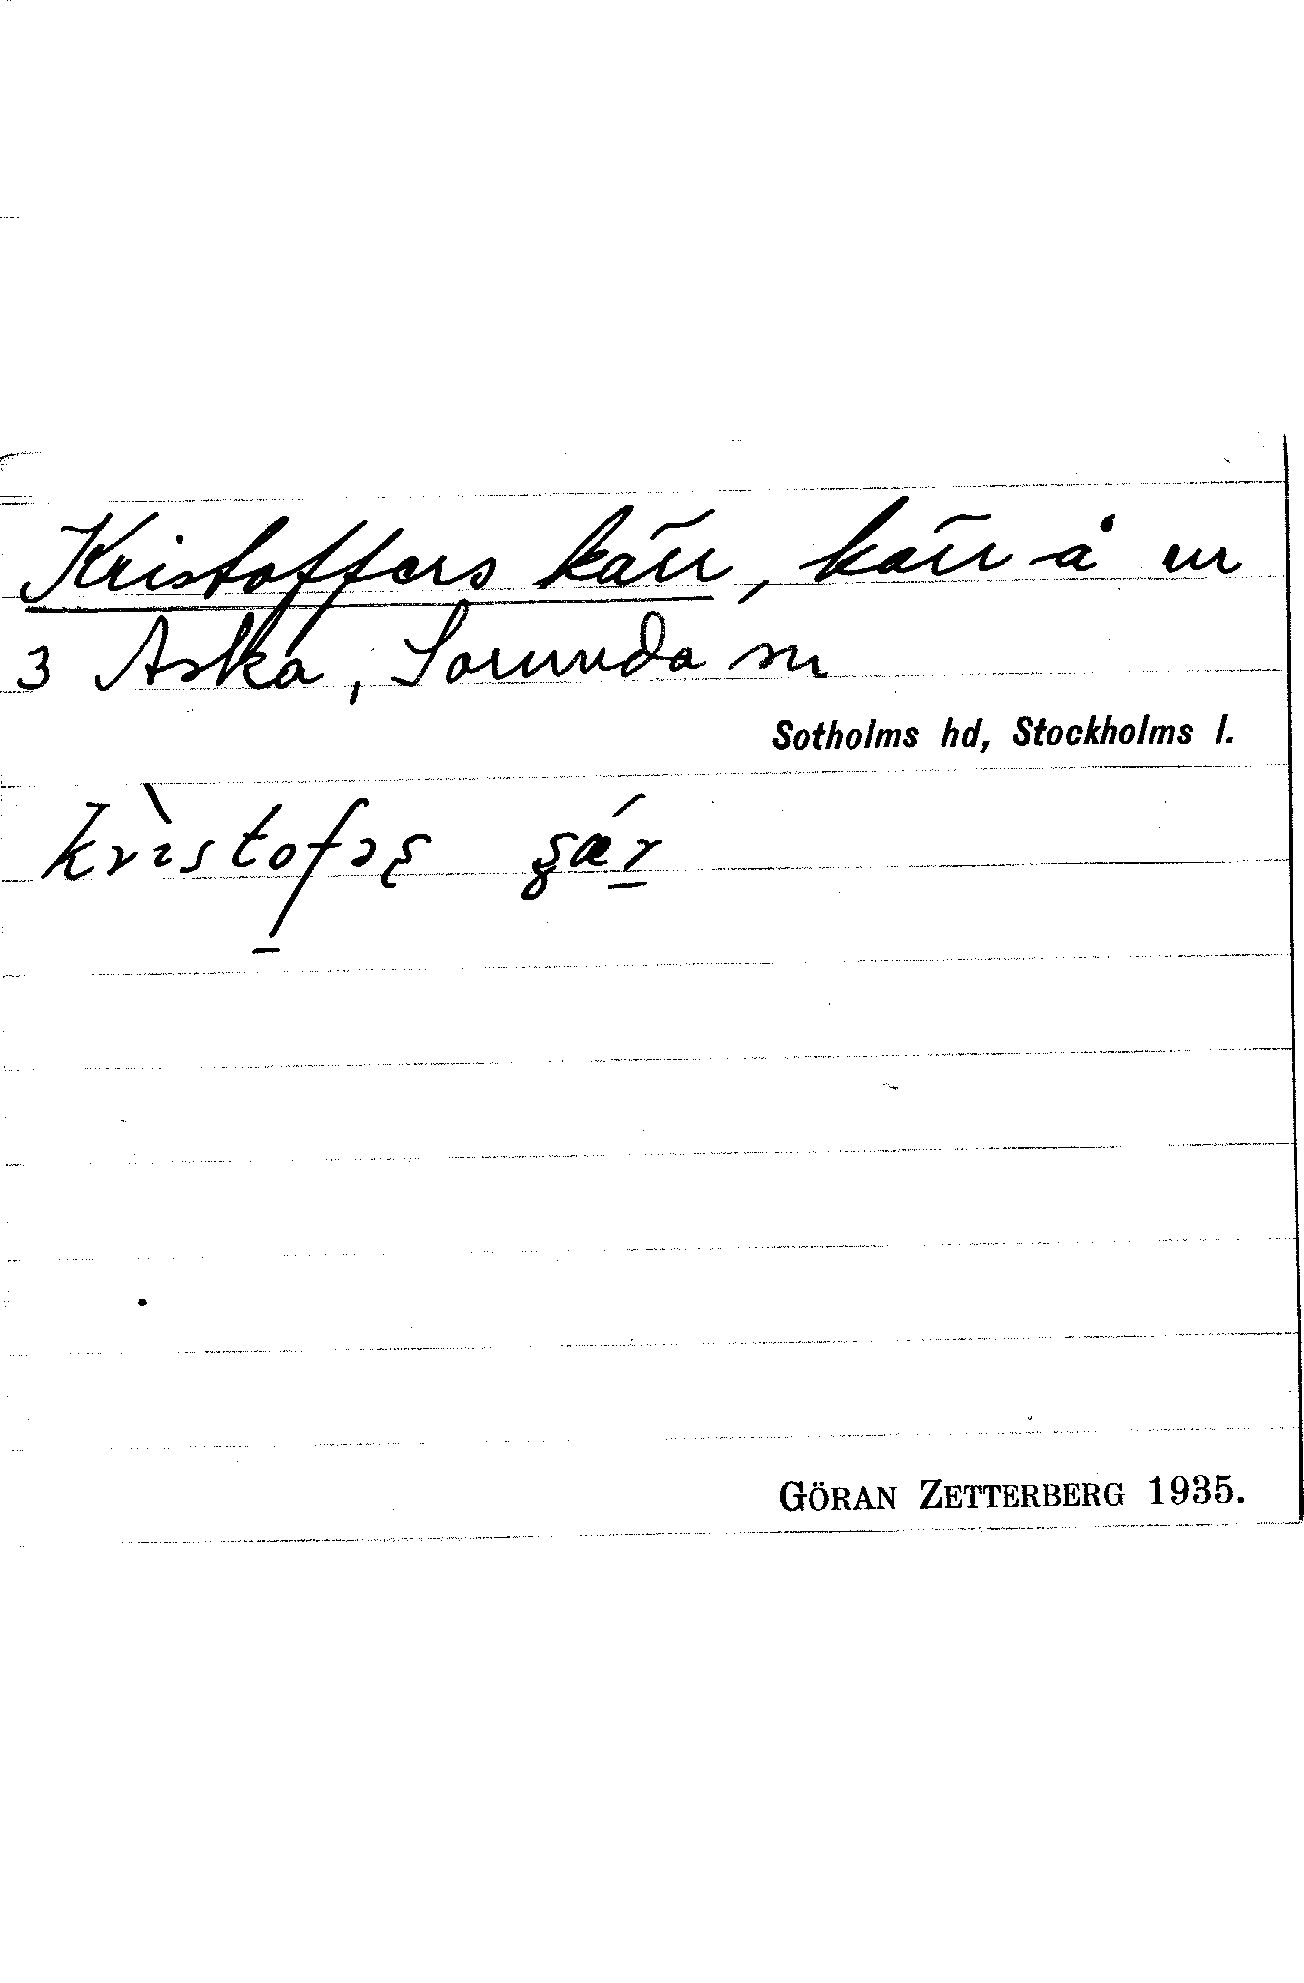 Kristoffers kärr, kärr å nr
3 Aska, Sorunda sn
Sotholms hd, Stockholms l.
krìstofəʂ ʂǽr
GÖRAN ZETTERBERG 1935.